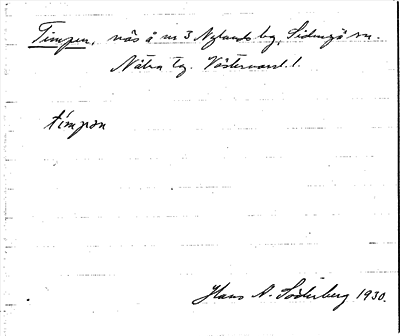 Timpen, näs å nr 3 Nylands by, Sidensjö sn.
Nätra tg. Västernorrl. l.
timpən
Hans A. Söderberg 1930.